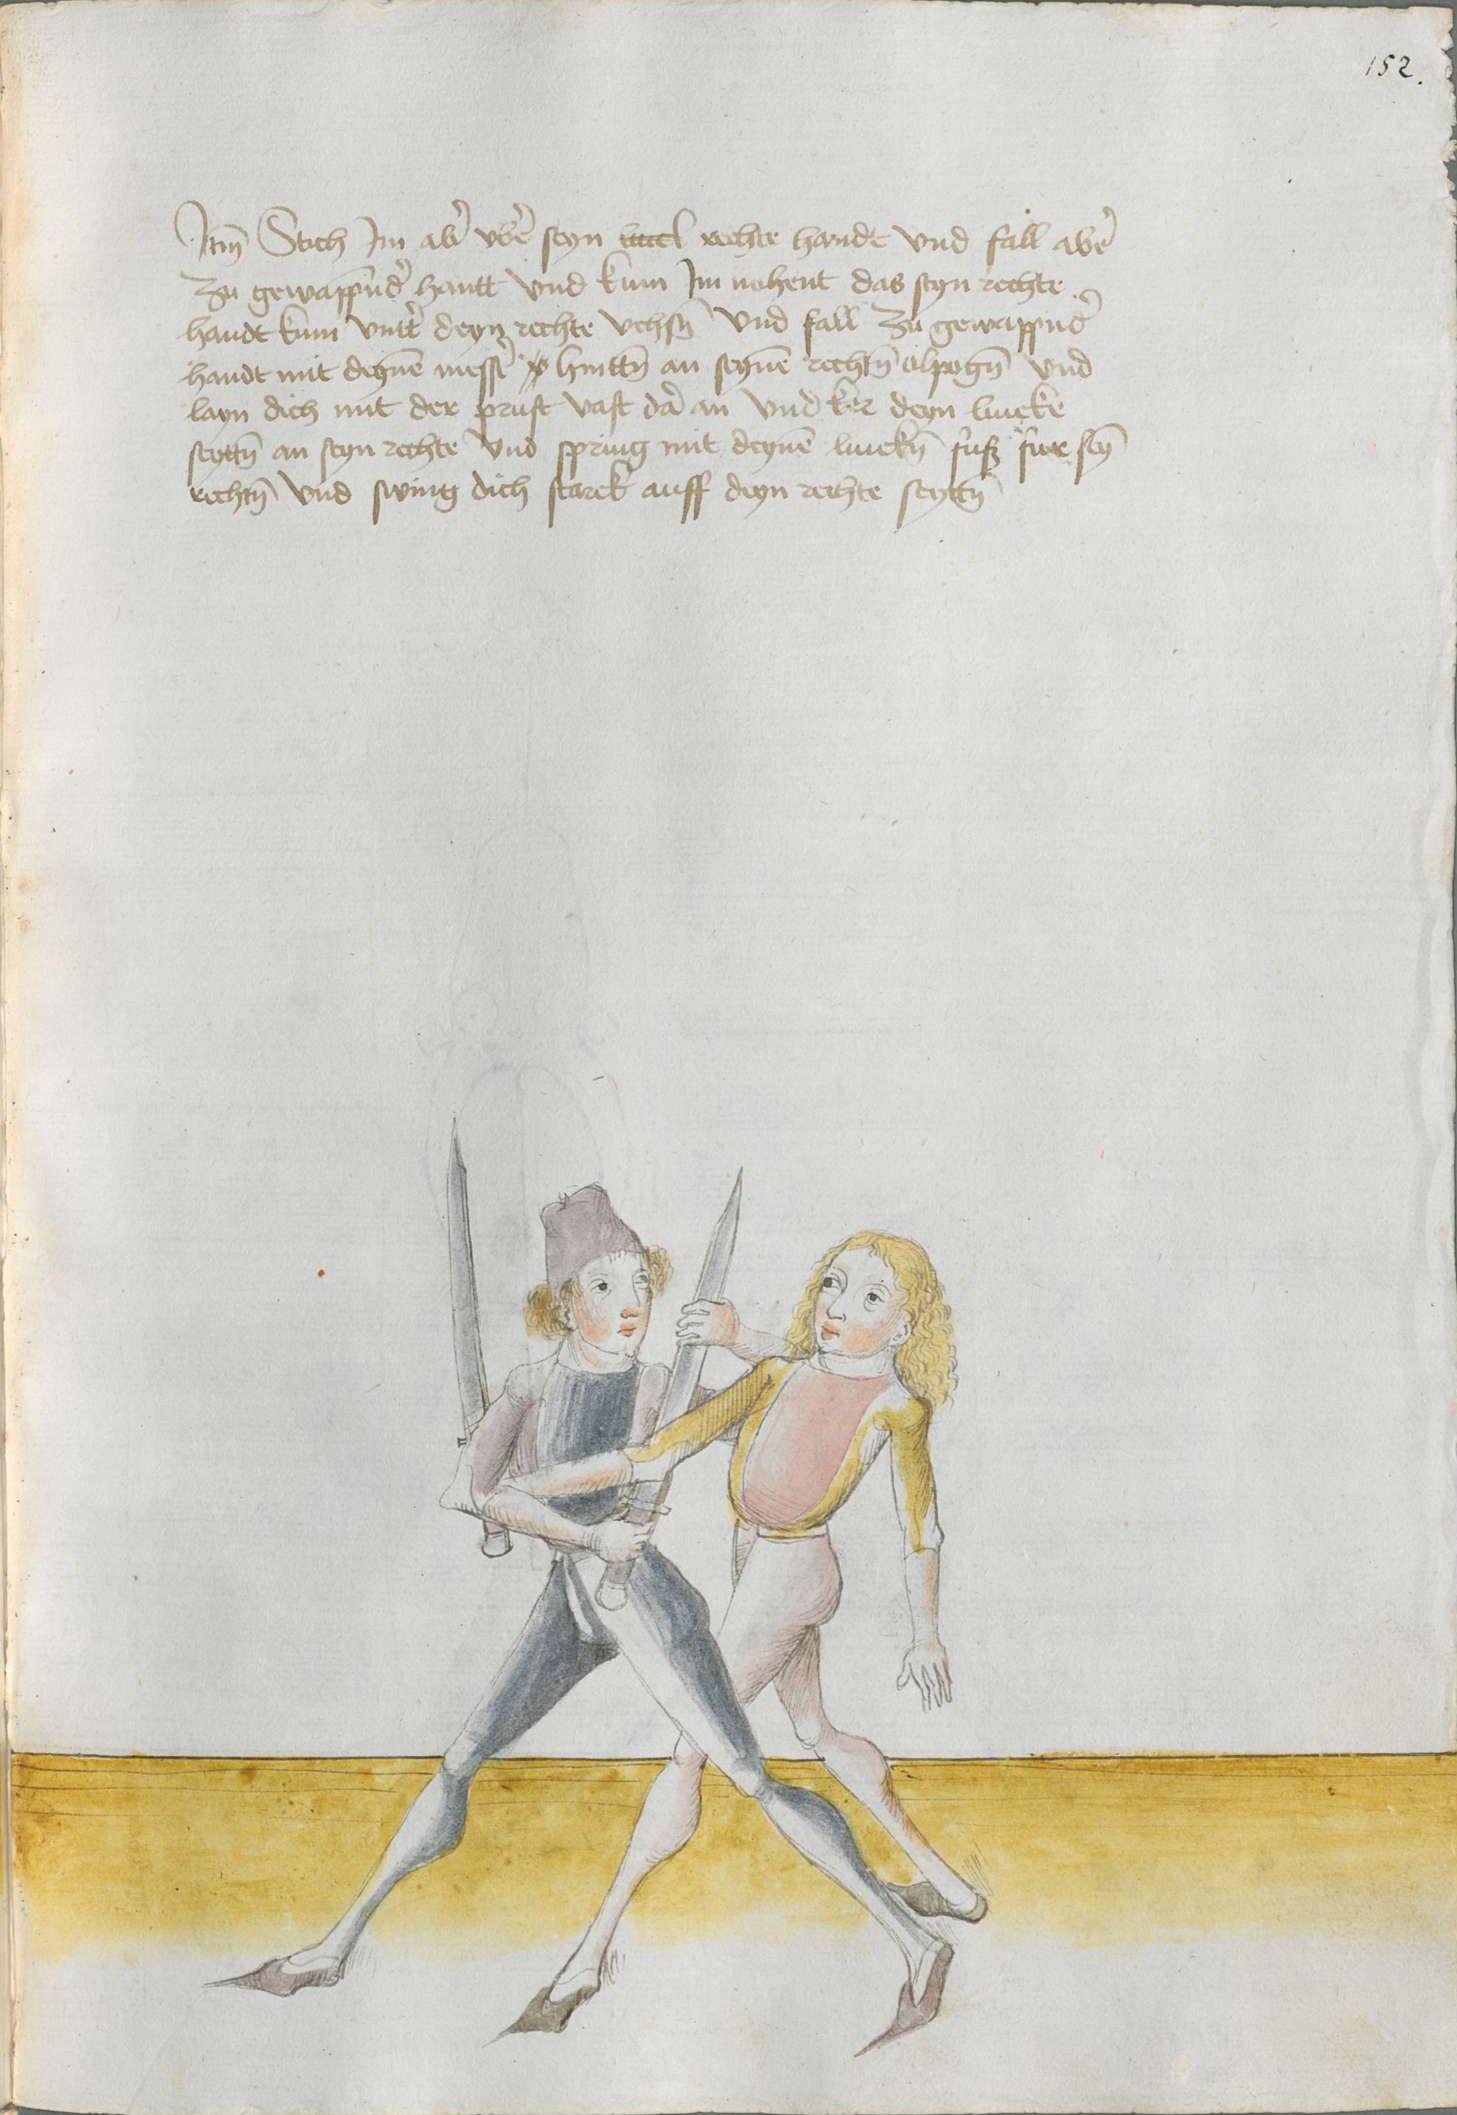 152.
Itm̄ Stich Im abr̄ vbr̄ seyn rechte hande vnd fall abr̄
zu gewappnd̄r hantt vnd kum Im nohent das seyn rechte
handt kum vntr̄ deyn rechte vchsn̄ vnd fall zu gewappndr̄
handt mit deynē messr̄ hinttn̄ an seynē rechtn̄ elpogn̄ vnd
layn dich mit der prust vast dar̄ an vnd ker deyn lincke
seyttn̄ an seyn rechte vnd spring mit deynē linckn̄ fuß fur sey̅
rechtn̄ vnd swing dich starck auff deyn rechte seyttn̄